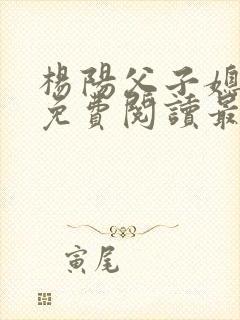 楊陽父子媳
免費閱讀最
寅尾